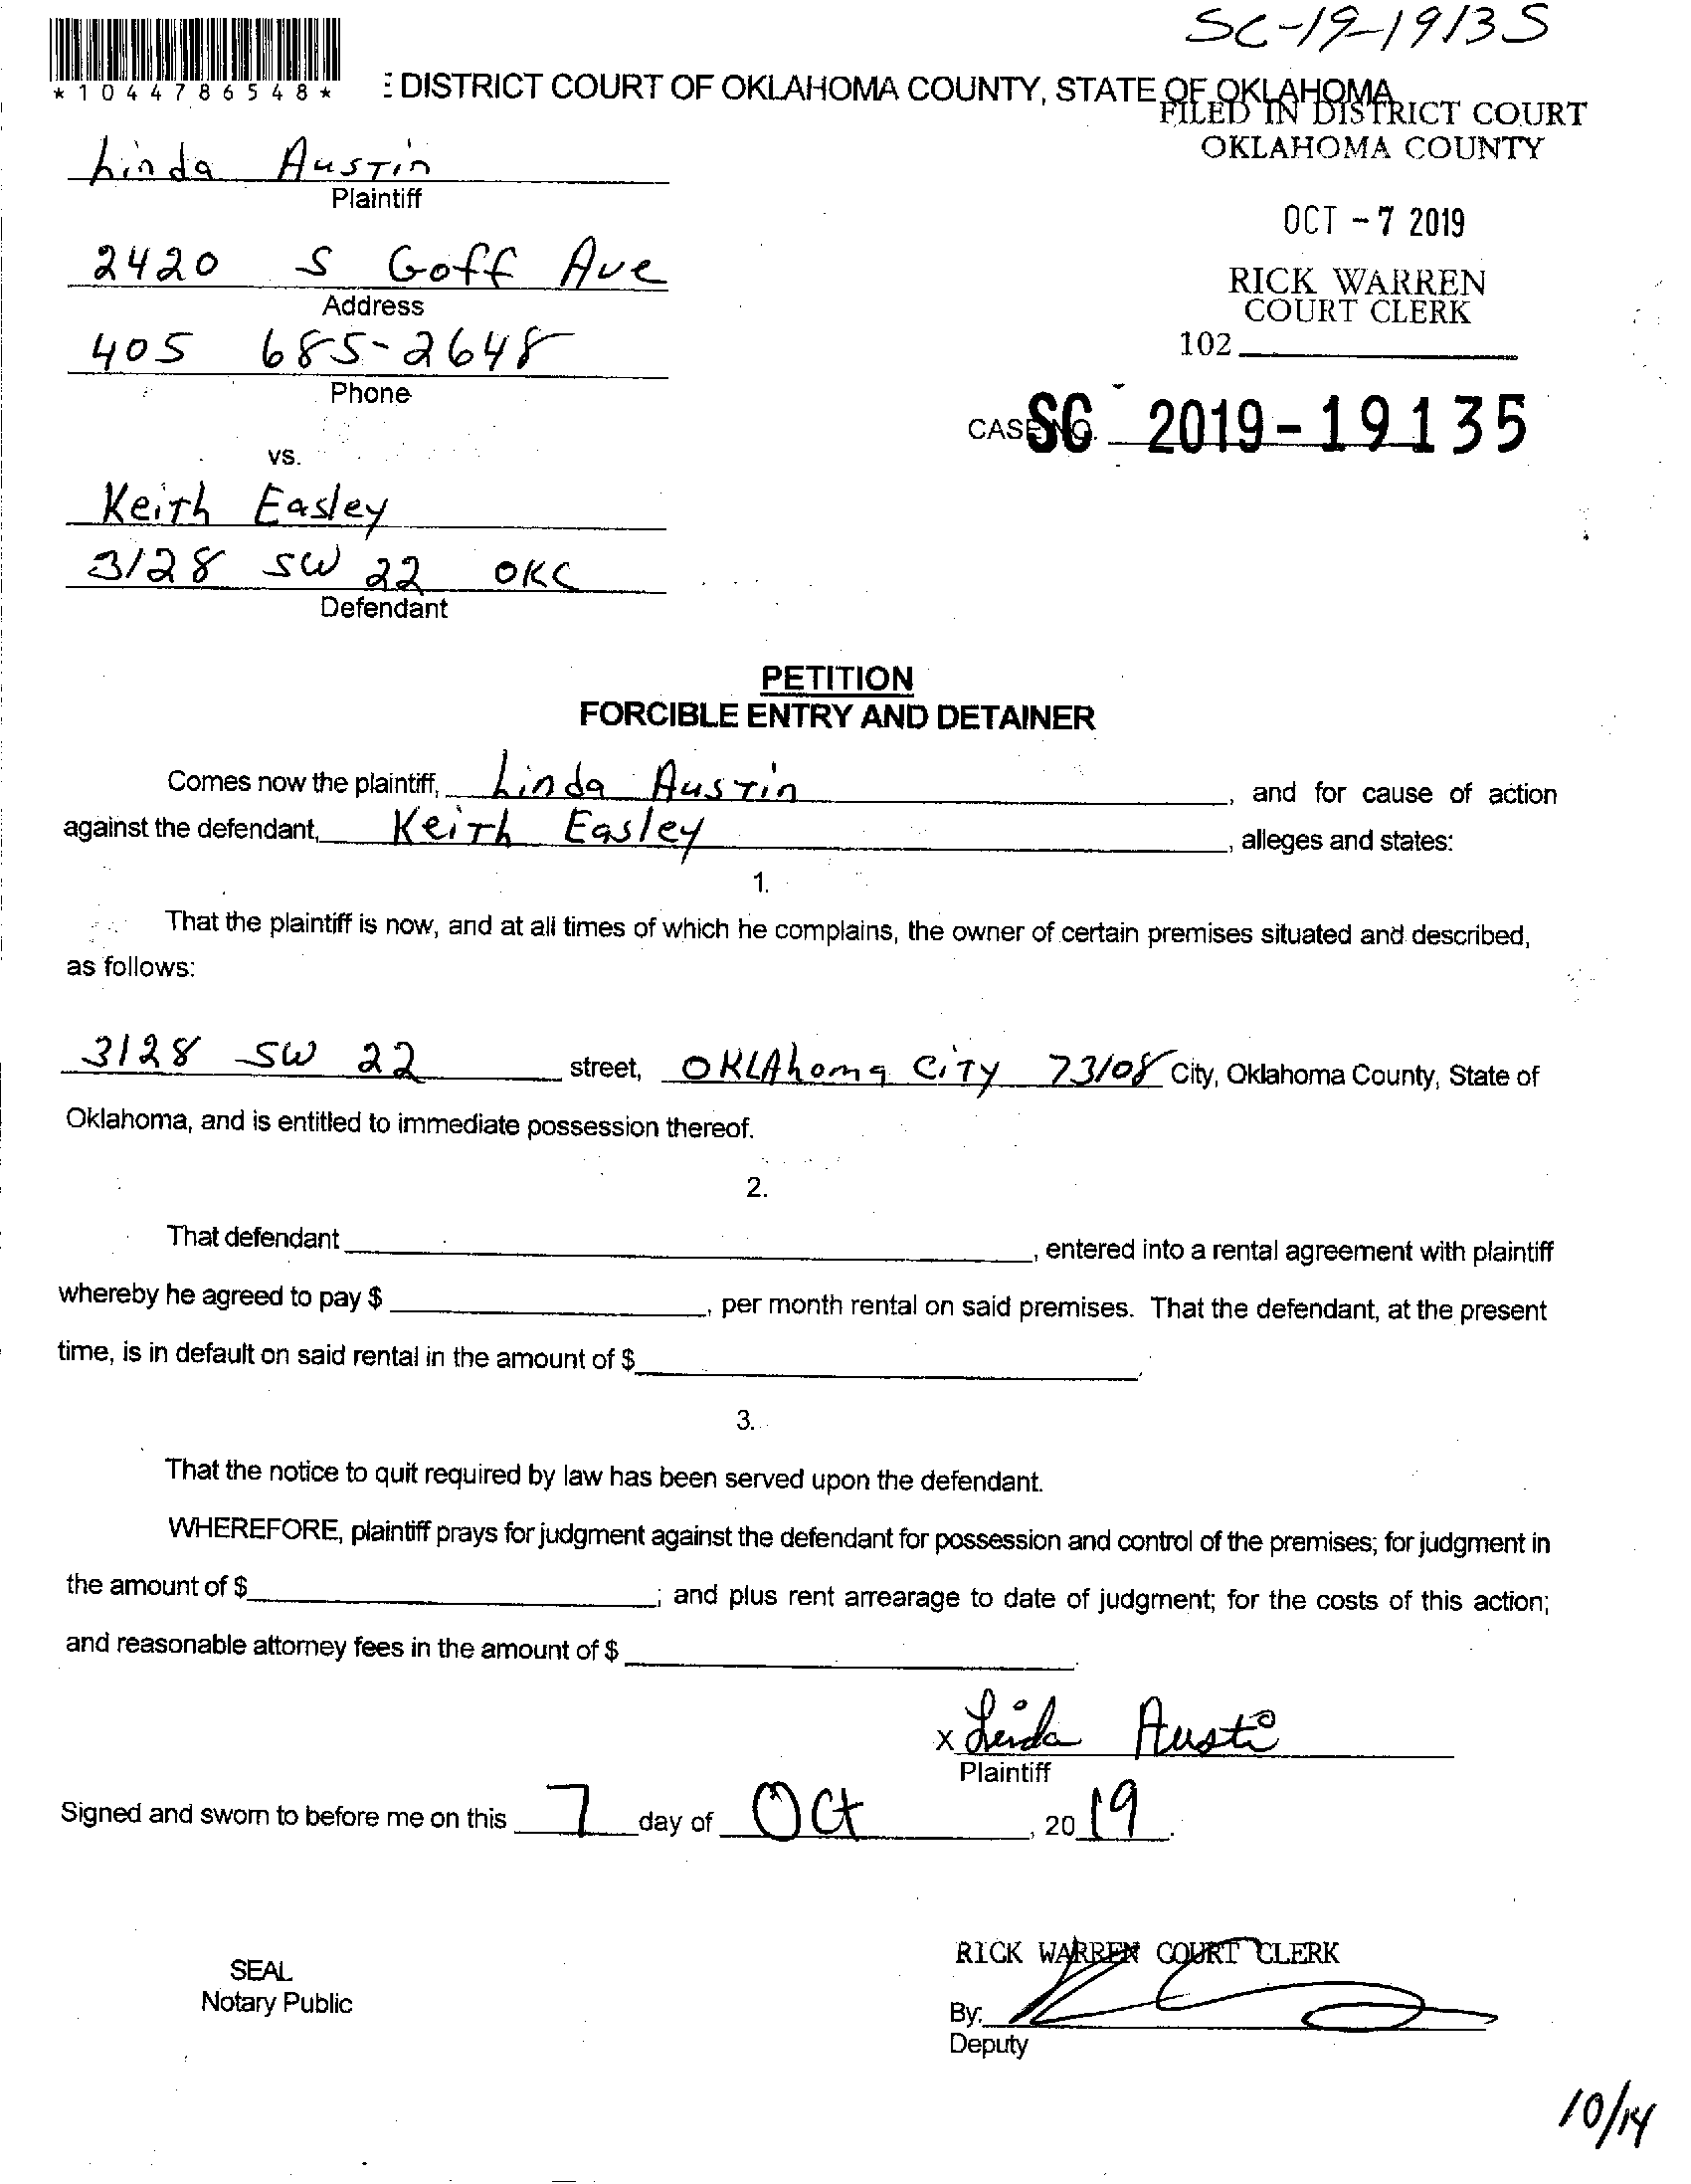 SC-19-19135
*1044786548*
DISTRICT COURT OF OKLAHOMA COUNTY, STATE OF OKLAHOMA
FILED IN DISTRICT COURT
OKLAHOMA COUNTY
Linda Austin
Plaintiff
OCT -7 2019
2420 S Goff Ave
Address
RICK WARREN
COURT CLERK
405 685-2648
Phone
102
CASE NO. SC 2019-19135
vs.
Keith Easley
3128 SW 22 OKC
Defendant
PETITION
FORCIBLE ENTRY AND DETAINER
Comes now the plaintiff, Linda Austin, and for cause of action
against the defendant, Keith Easley, alleges and states:
1.
That the plaintiff is now, and at all times of which he complains, the owner of certain premises situated and described,
as follows:
3128 SW 22 street, OKLAhoma City 73108 City, Oklahoma County, State of
Oklahoma, and is entitled to immediate possession thereof.
2.
That defendant, entered into a rental agreement with plaintiff
whereby he agreed to pay $, per month rental on said premises. That the defendant, at the present
time, is in default on said rental in the amount of $.
3.
That the notice to quit required by law has been served upon the defendant.
WHEREFORE, plaintiff prays for judgment against the defendant for possession and control of the premises; for judgment in
the amount of $; and plus rent arrearage to date of judgment; for the costs of this action;
and reasonable attorney fees in the amount of $.
x Linda Austin
Plaintiff
Signed and sworn to before me on this 7 day of Oct, 20 19.
RICK WARREN COURT CLERK
SEAL
Notary Public
By:
Deputy
10/14